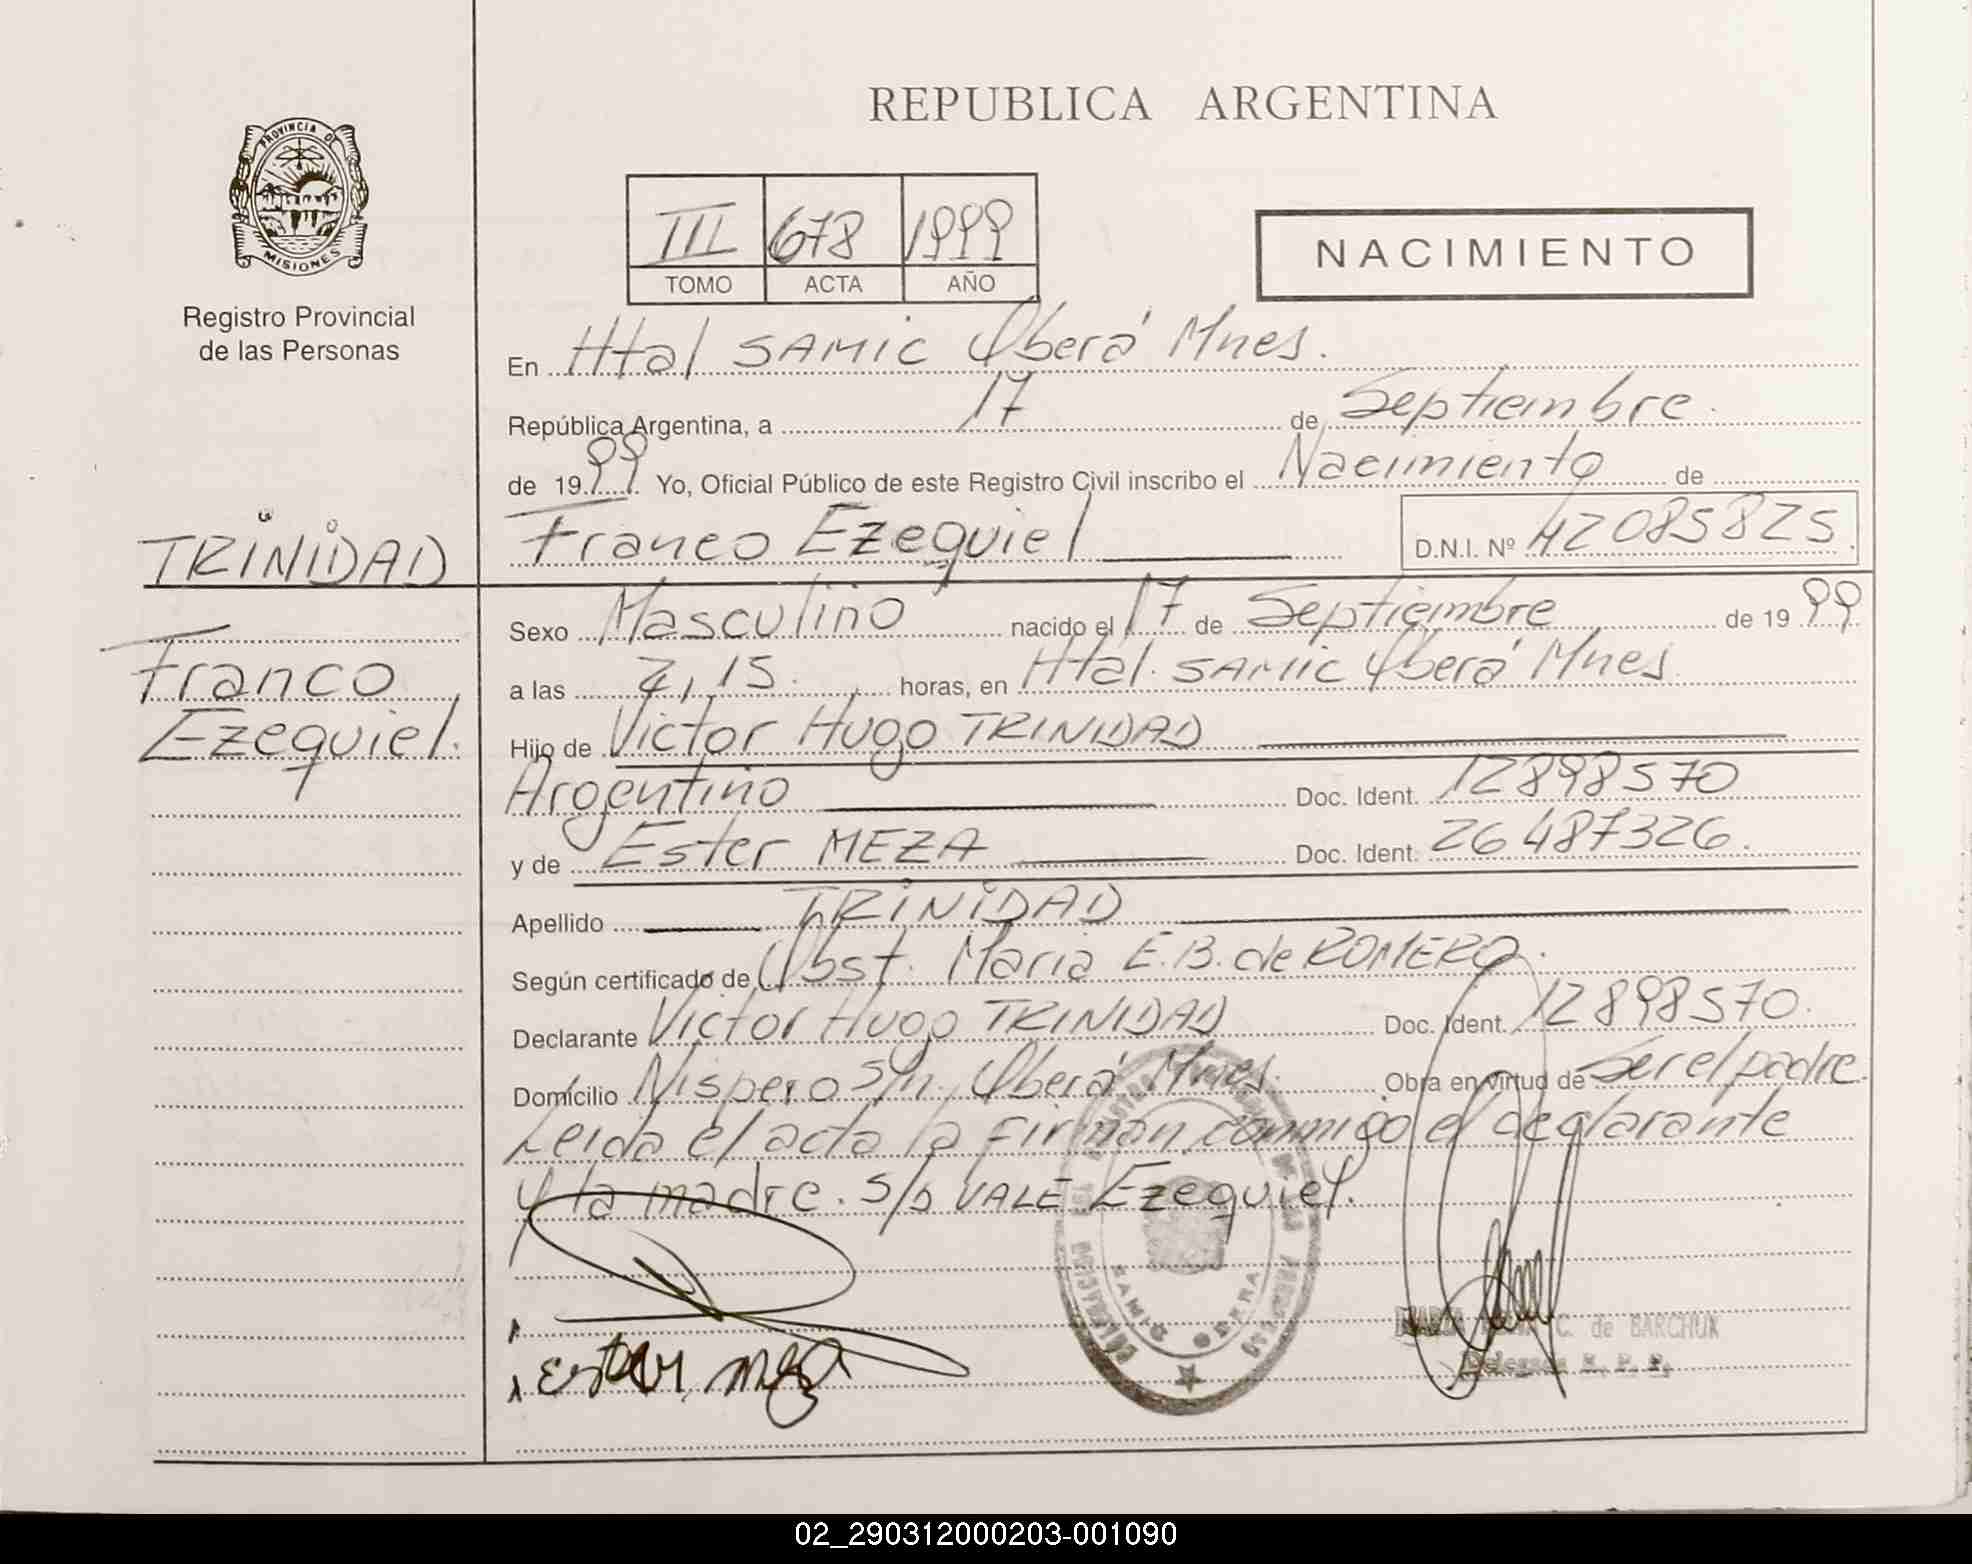 PROVINCIA DE
MISIONES
Registro Provincial
de las Personas
REPUBLICA ARGENTINA
III 678 1999
TOMO ACTA AÑO
NACIMIENTO
En Htal SAMIC Oberá Mnes.
República Argentina, a 17 de Septiembre
de 1999 Yo, Oficial Público de este Registro Civil inscribo el Nacimiento de
TRINIDAD
Franco
Ezequiel.
Franco Ezequiel D.N.I. Nº 42085825
Sexo Masculino nacido el 17 de Septiembre de 1999
a las 2,15 horas, en Htal. SAMIC Oberá Mnes
Hijo de Victor Hugo TRINIDAD
Argentino Doc. Ident. 12898570
y de Ester MEZA Doc. Ident. 26487326.
Apellido TRINIDAD
Según certificado de Obst. Maria E.B. de ROMERO.
Declarante Victor Hugo TRINIDAD Doc. Ident. 12898570.
Domicilio Nispero S/n. Oberá Mnes. Obra en virtud de Ser el padre.
Leida el acta la firman conmigo el declarante
y la madre. S/b VALE Ezequiel.
Ester meza
SAMIC OBERA
C. de BARCHUK
Delegada R. P. P.
02_290312000203-001090